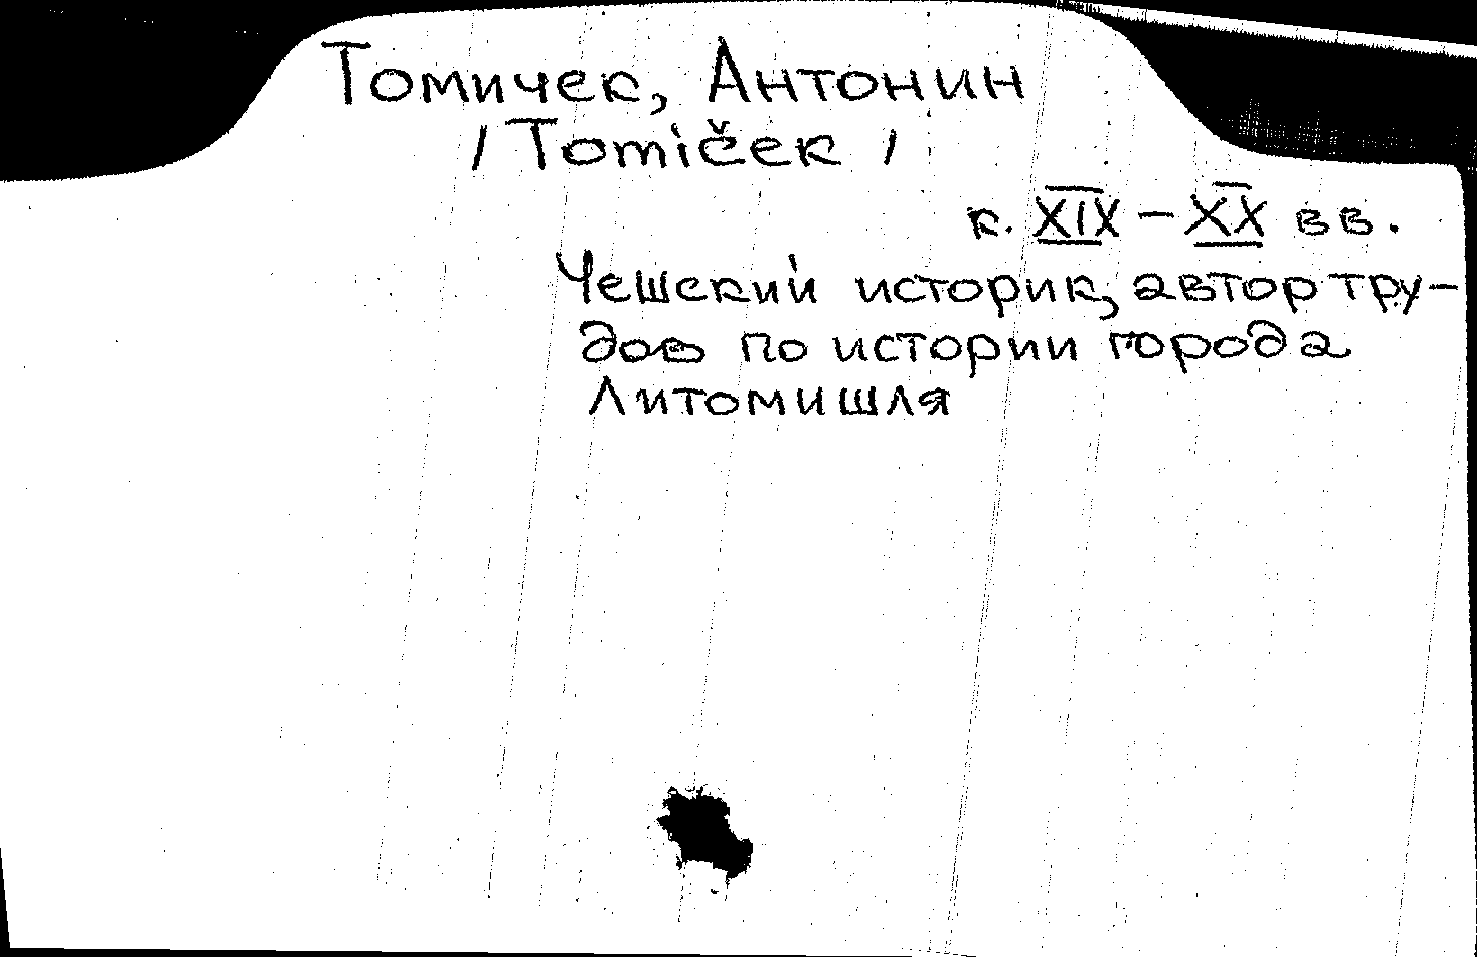 Томичек, Антонин
/Tomiček/
к. XIX – XX вв.
Чешский историк, автор тру-
дов по истории города
Литомишля